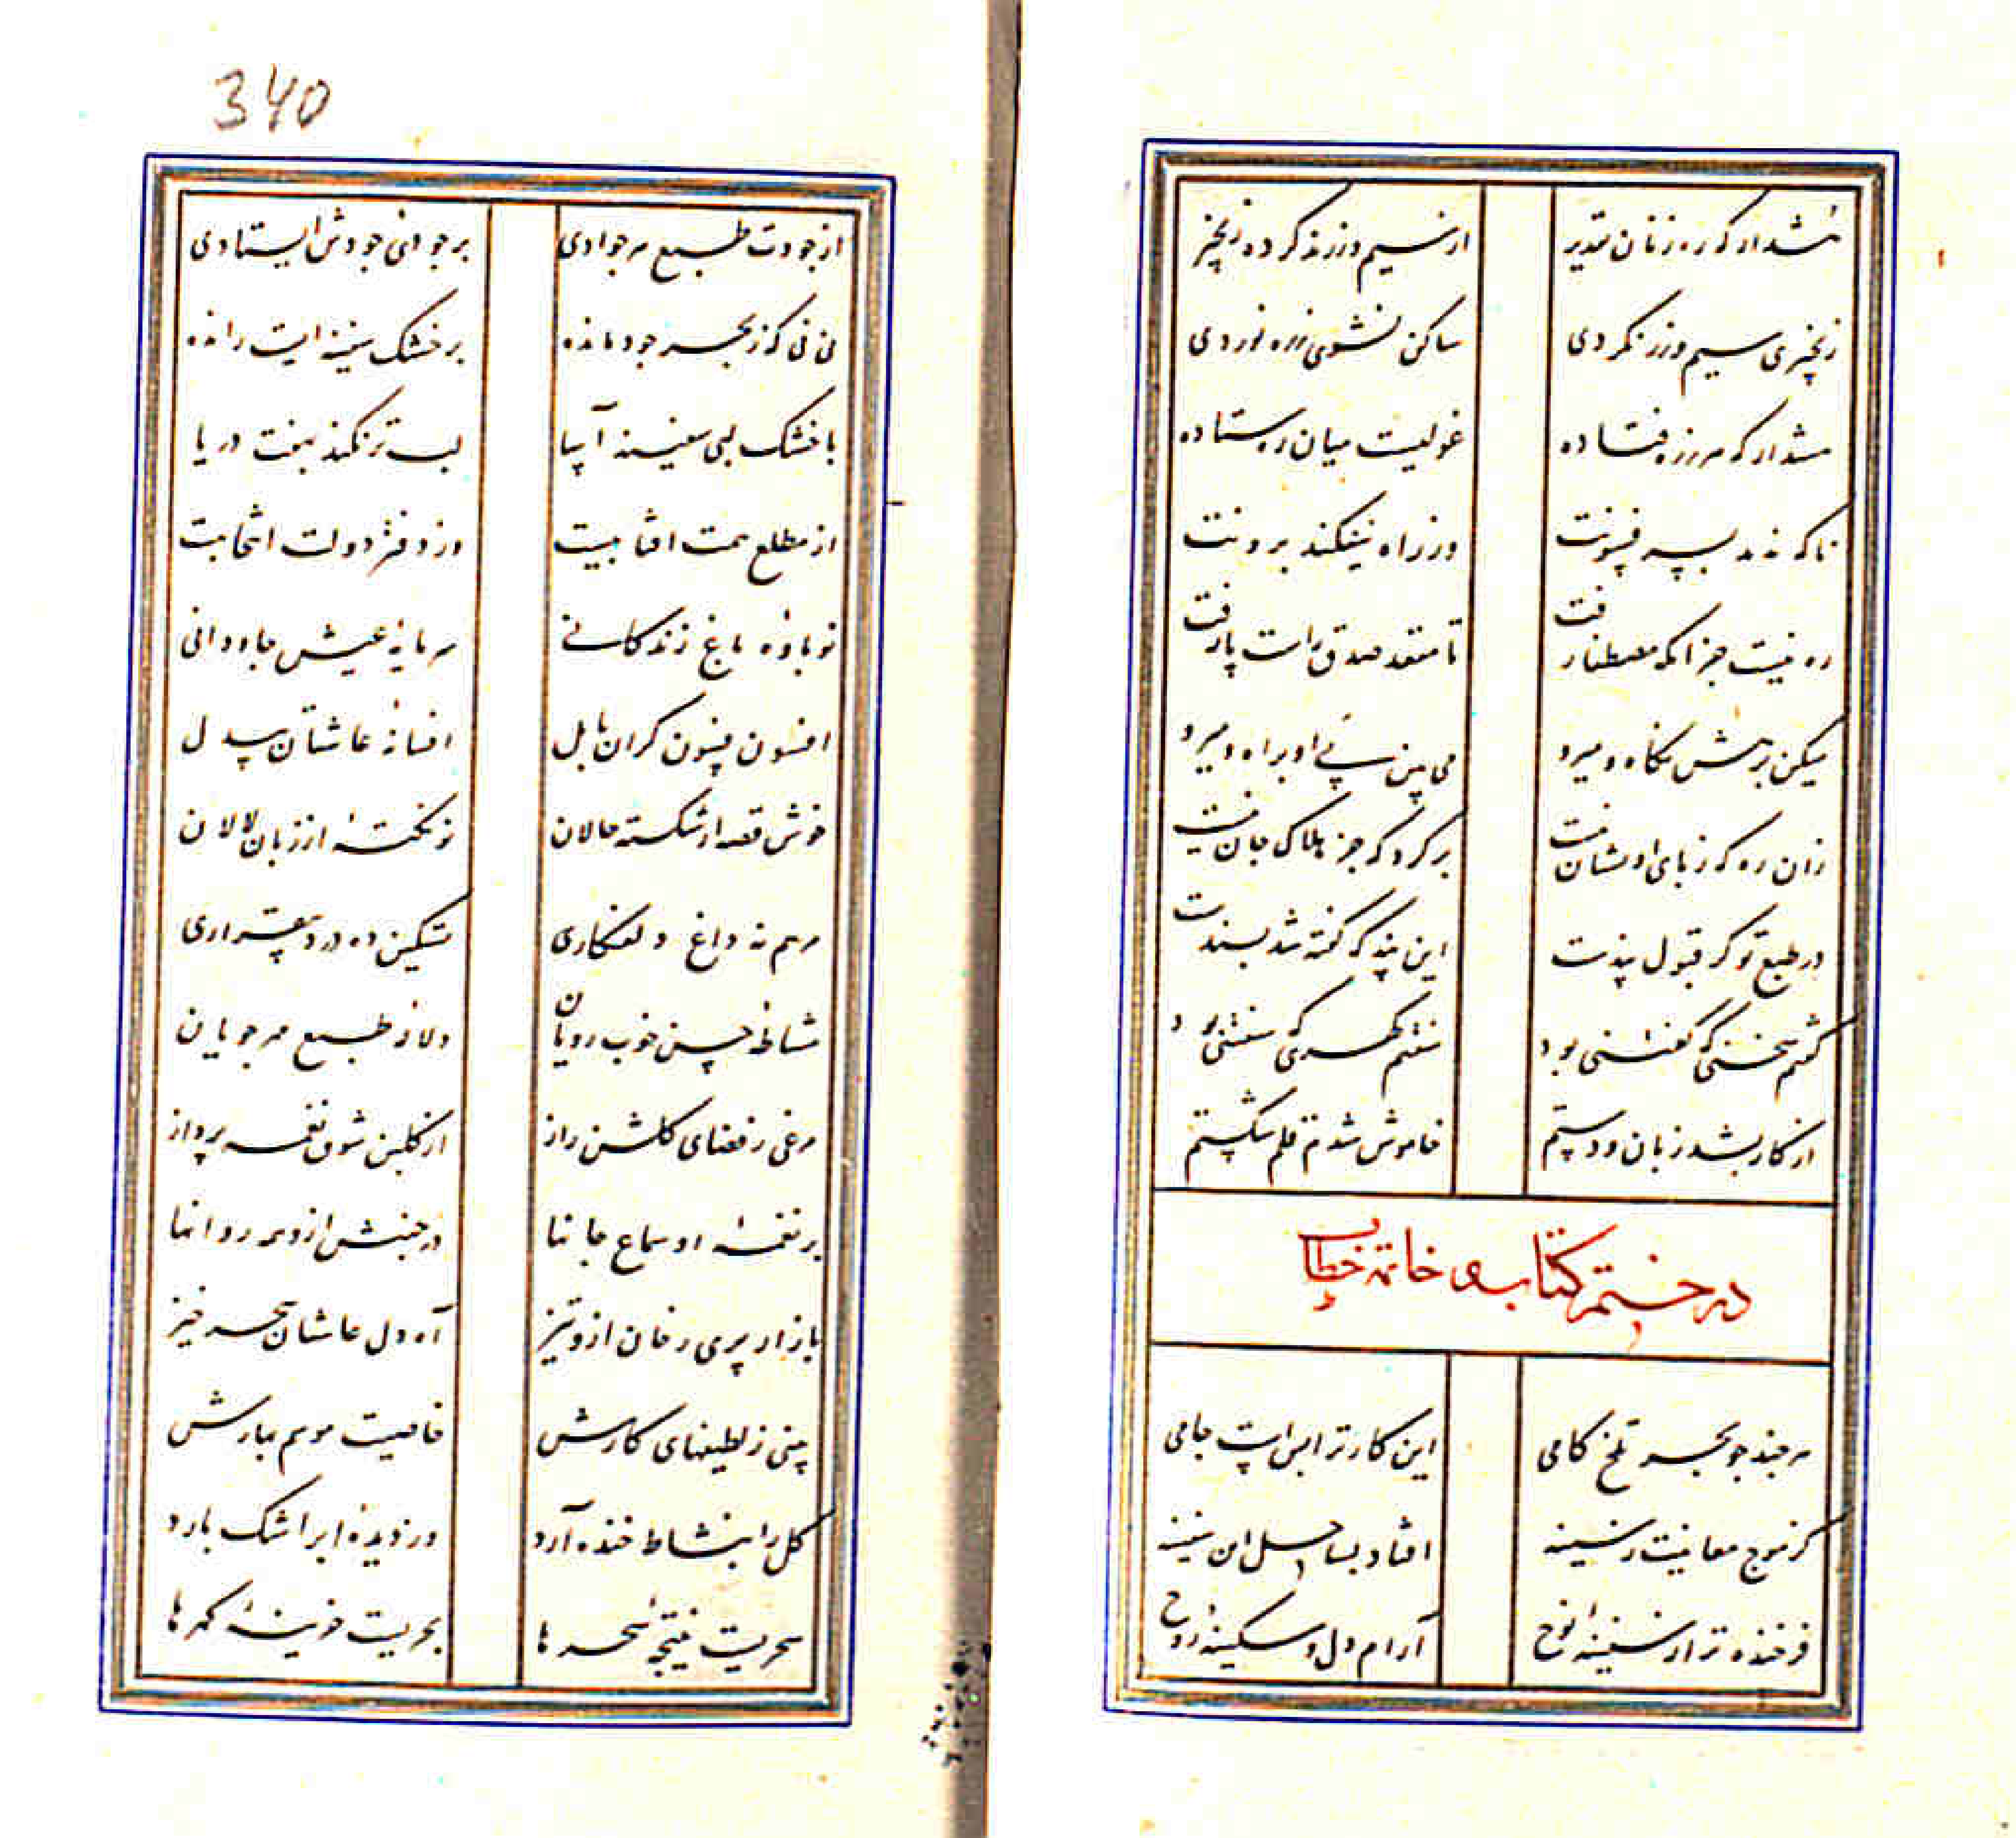 هشدار که رهزنان تقدیر از سیم و زرند کرده زنجیر
زنجیری سیم و زر نگردی ساکن نشوی ز ره نوردی
هشدار که هر زه فتاده غولیست میان ره ستاده
ناکه ندمد بسر فسونت وز راه نیفکند برونت
ره نیست جز انکه مصطفا رفت تا مقعد صدق راست پا رفت
میکن برهش نگاه و میرو می بین پی او براه و میرو
زان ره که ز پای او نشان نیست برگرد که جز هلاک جان نیست
در طبع تو گر قبول پندست این پند که گفته شد بسندست
گفتم سخنی که گفتنی بود سفتم گهری که سفتنی بود
از کار بشد زبان و دستم خاموش شدم قلم شکستم
در ختم کتاب و خاتمه خطاب
هر چند چو بحر تلخ کامی این کار ترا بس است جامی
کز موج معانیت ز سینه افتاد بساحل این سفینه
فرخنده تر از سفینه نوح آرام دل و سکینه روح
340
از جودت طبع هر جوادی بر جودی جودش ایستادی
نی نی که ز بحر جود مانده بر خشک سفینه ایست رانده
با خشک لبی سفینه آسا لب تر نکند بهفت دریا
از مطلع همت افتابیست وز دفتر دولت انتخابیست
نوباوه باغ زندگانی سرمایه عیش جاودانی
افسون فسون گران بابل افسانه عاشقان بیدل
خوش قصه از شکسته حالان نو نکته از زبان لالان
مرهم نه داغ دلفکاری تسکین ده درد بیقراری
مشاطه حسن خوب رویان دلاله طبع مهر جویان
مرغی ز فضای گلشن راز از گلبن شوق نغمه پرداز
بر نغمه او سماع جانها در جنبش ازو همه روانها
بازار پری رخان ازو تیز آه دل عاشقان سحر خیز
بینی ز لطیفهای کارش خاصیت موسم بهارش
گل را بنشاط خنده آرد وز دیده ابر اشک بارد
سحریست نتیجه سحرها بحریست خزینه گهرها